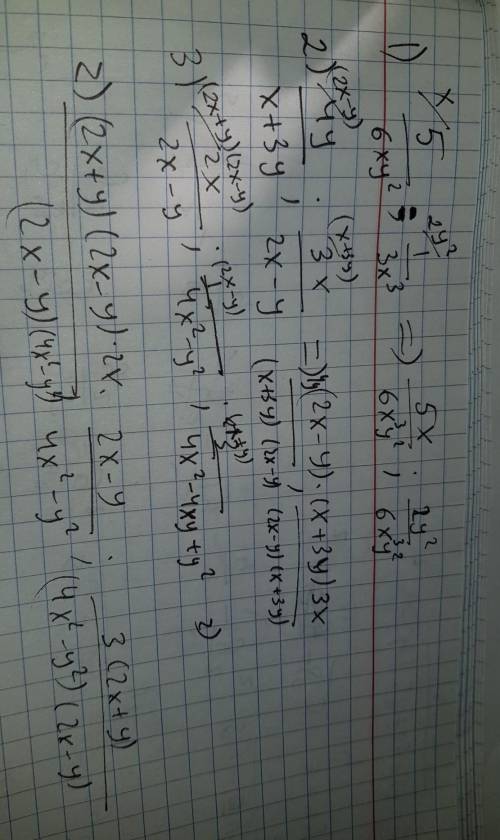 1) x/ 5/6xy² ; 2y²/ 1/3x³ => 5x/6x³y² ; 2y²/6xy³²
2) (2x-y)/ 4y/x+3y ; (x+3y)/ 3x/2x-y => 4y(2x-y)/(x+3y)(2x-y) ; (x+3y)3x/(2x-y)(x+3y)
3) (2x+y)(2x-y)/ 2x/2x-y ; (2x-y)/ 1/4x²-y² ; 3/4x²-4xy+y²
2) (2x+y)(2x-y)·2x/(2x-y)(4x²-y²) ; 2x-y/4x²-y² ; 3(2x+y)/(4x²-y²)(2x-y)